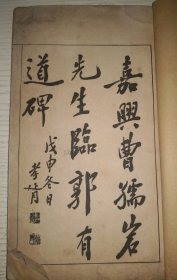 嘉興曹孺岩
先生臨郭有
道碑
戊申冬日
孝胥